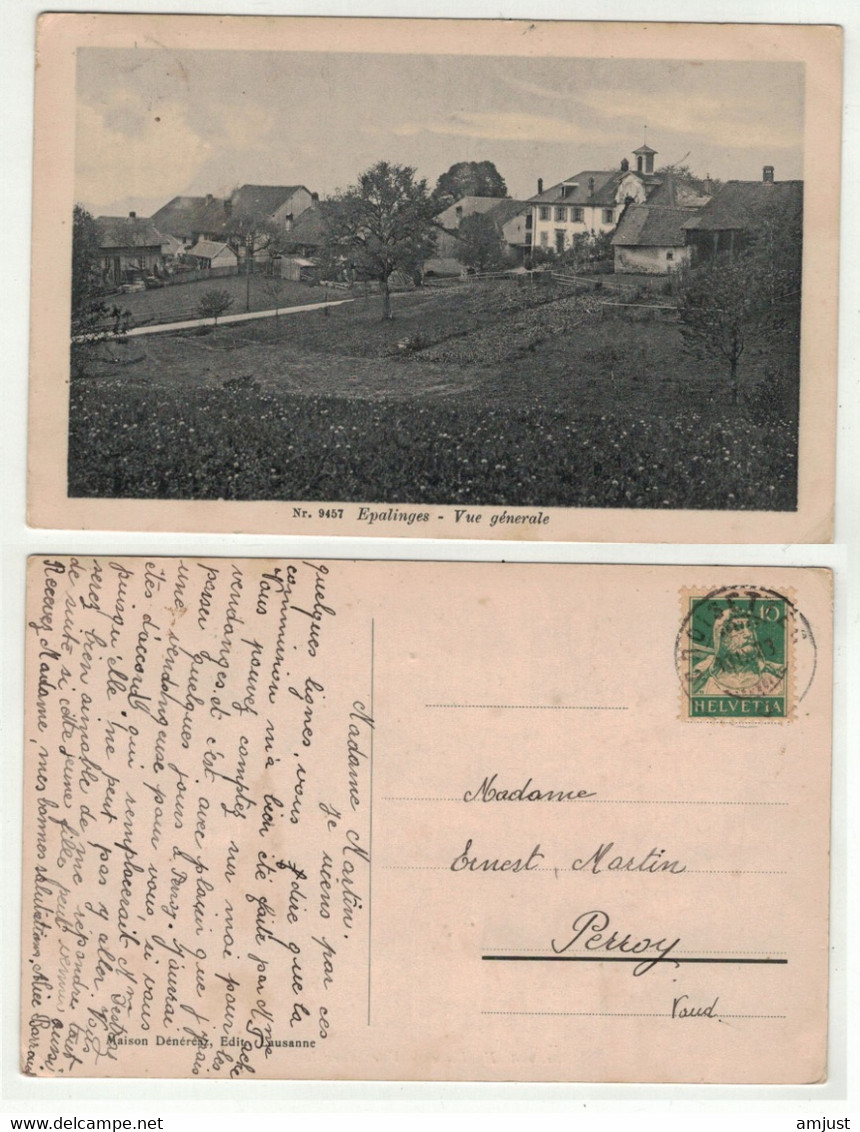 Nr. 9457 Epalinges - Vue génerale
Madame Martin.
Je viens par ces
quelques lignes, vous dire que la
commission m'a bien été faite par Mme
Vous pouvez comptez sur moi pour les
vendanges et c'est avec plaisir que j'irais
passer quelques jours à Perroy. J'aurai
une vendangeuse pour vous, si vous
êtes d'accord qui remplacerait Mme
puisqu'elle ne peut pas y aller.
serez bien aimable de me répondre tout
de suite si cette jeune filles peut venir aussi
Recevez Madame, mes bonnes salutations. Alice
Maison Dénéréaz, Edit. Lausanne
10
HELVETIA
Madame
Ernest Martin
Perroy
Vaud.
amjust